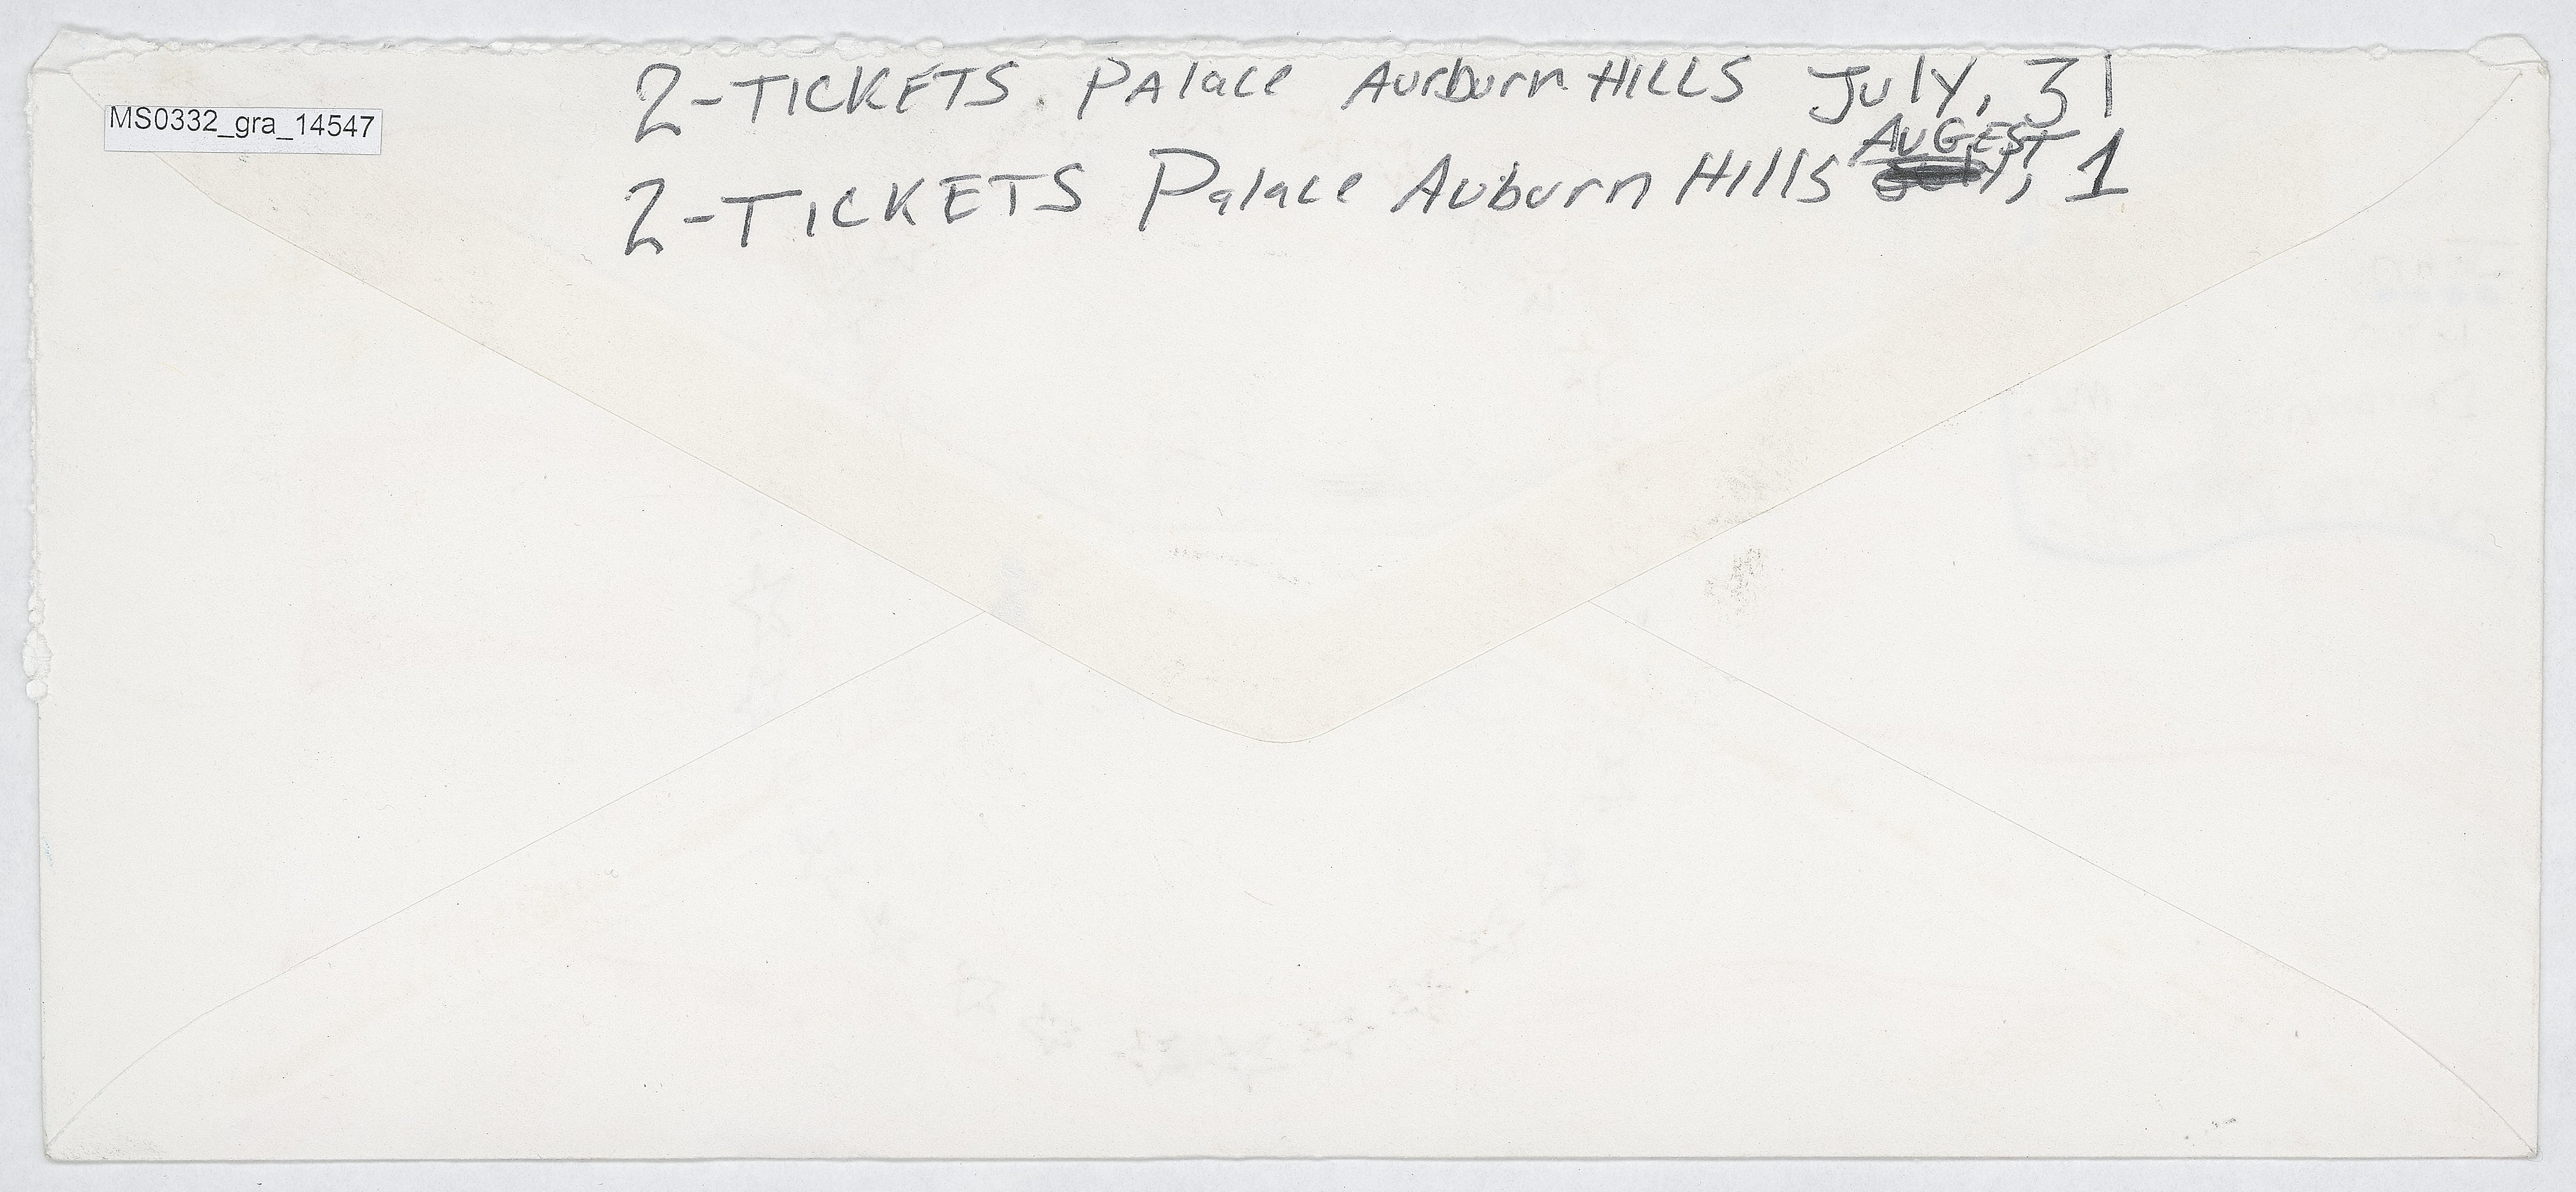 2-TICKETS. PAlace AurburnHILLS July, 31
MS0332_gra_14547
AUGEST
2-TICKETS Palace Auburn Hills July, 1